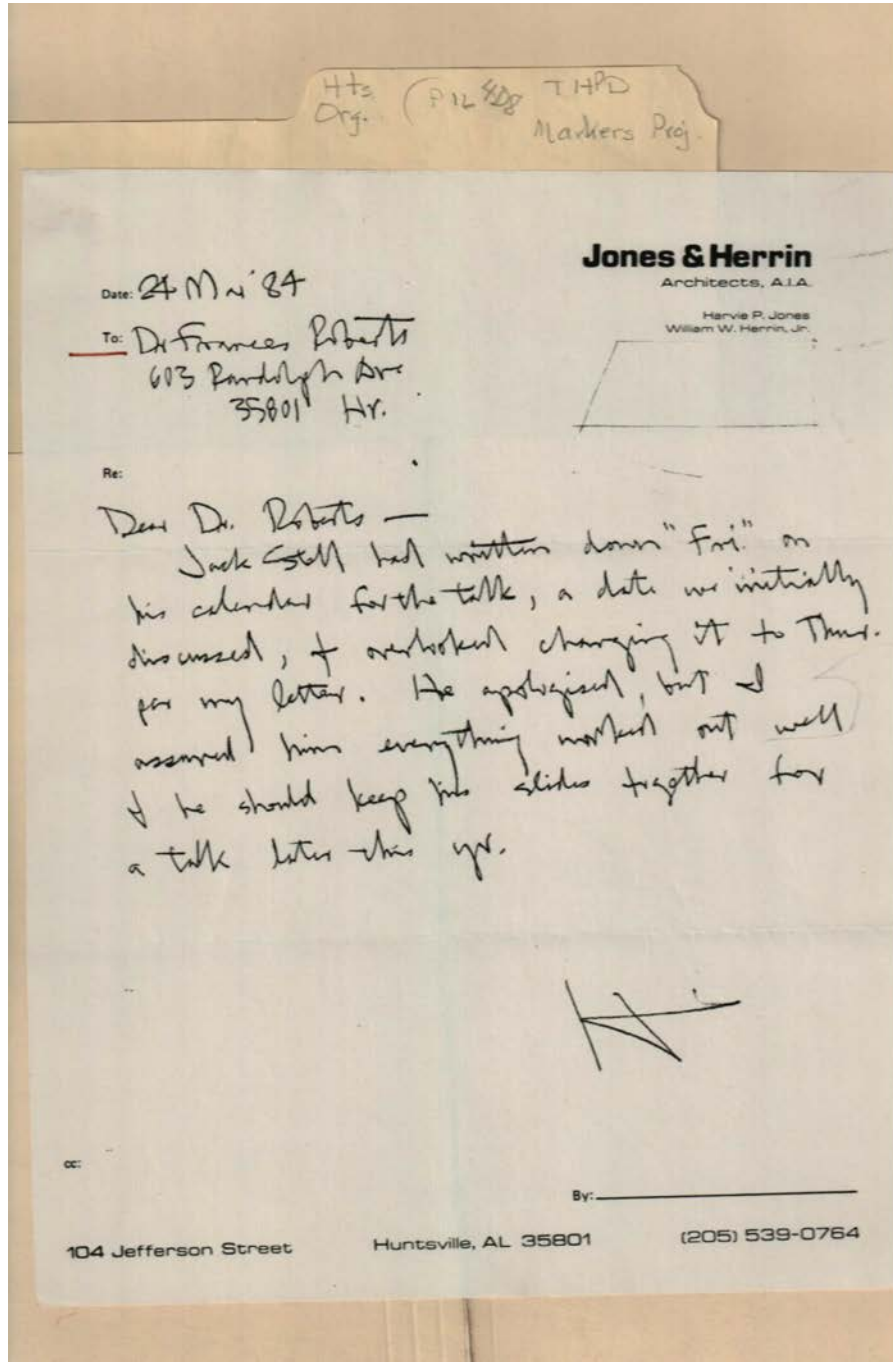 Hts. THPD
Org. (P12
Markers Proj.
Jones & Herrin
Architects, A.I.A.
Harvie P. Jones
William W. Herrin, Jr.
Date: 24 '84
To: Dr Frances Roberts
603 Randolph Ave
35801 Hv.
Re:
Dear Dr. Roberts —
Jack had written down "Fri." on
his calendar for the talk, a date we initially
discussed, & overlooked changing it to Thur.
per my letter. He apologised, but I
assured him everything worked out well
& he should keep his slides together for
a talk later this yr.
cc:
By:
104 Jefferson Street Huntsville, AL 35801 (205) 539-0764